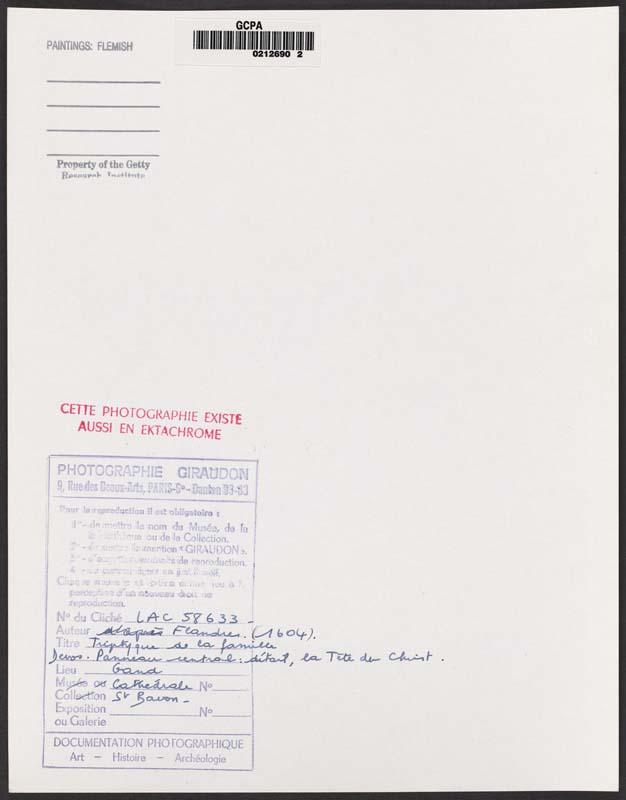 PAINTINGS: FLEMISH
GCPA
0212690 2
Property of the Getty
Research Institute
CETTE PHOTOGRAPHIE EXISTE
AUSSI EN EKTACHROME
PHOTOGRAPHIE GIRAUDON
9, Rue des Beaux-Arts, PARIS-6e - Danton 93-83
Pour la reproduction il est obligatoire :
1° - de mettre le nom du Musée, de la
ou de la Collection.
2° - de mettre la mention "GIRAUDON".
3° - de reproduction.
4° -
perception d'un nouveau droit de
reproduction.
No du Cliché LAC 58633 -
Auteur d'après Flandres. (1604).
Titre Triptyque de la famille
Devos. Panneau central: détail, la Tête du Christ.
Lieu Gand
Musée ou Cathédrale No
Collection St Bavon -
Exposition No
ou Galerie
DOCUMENTATION PHOTOGRAPHIQUE
Art - Histoire - Archéologie